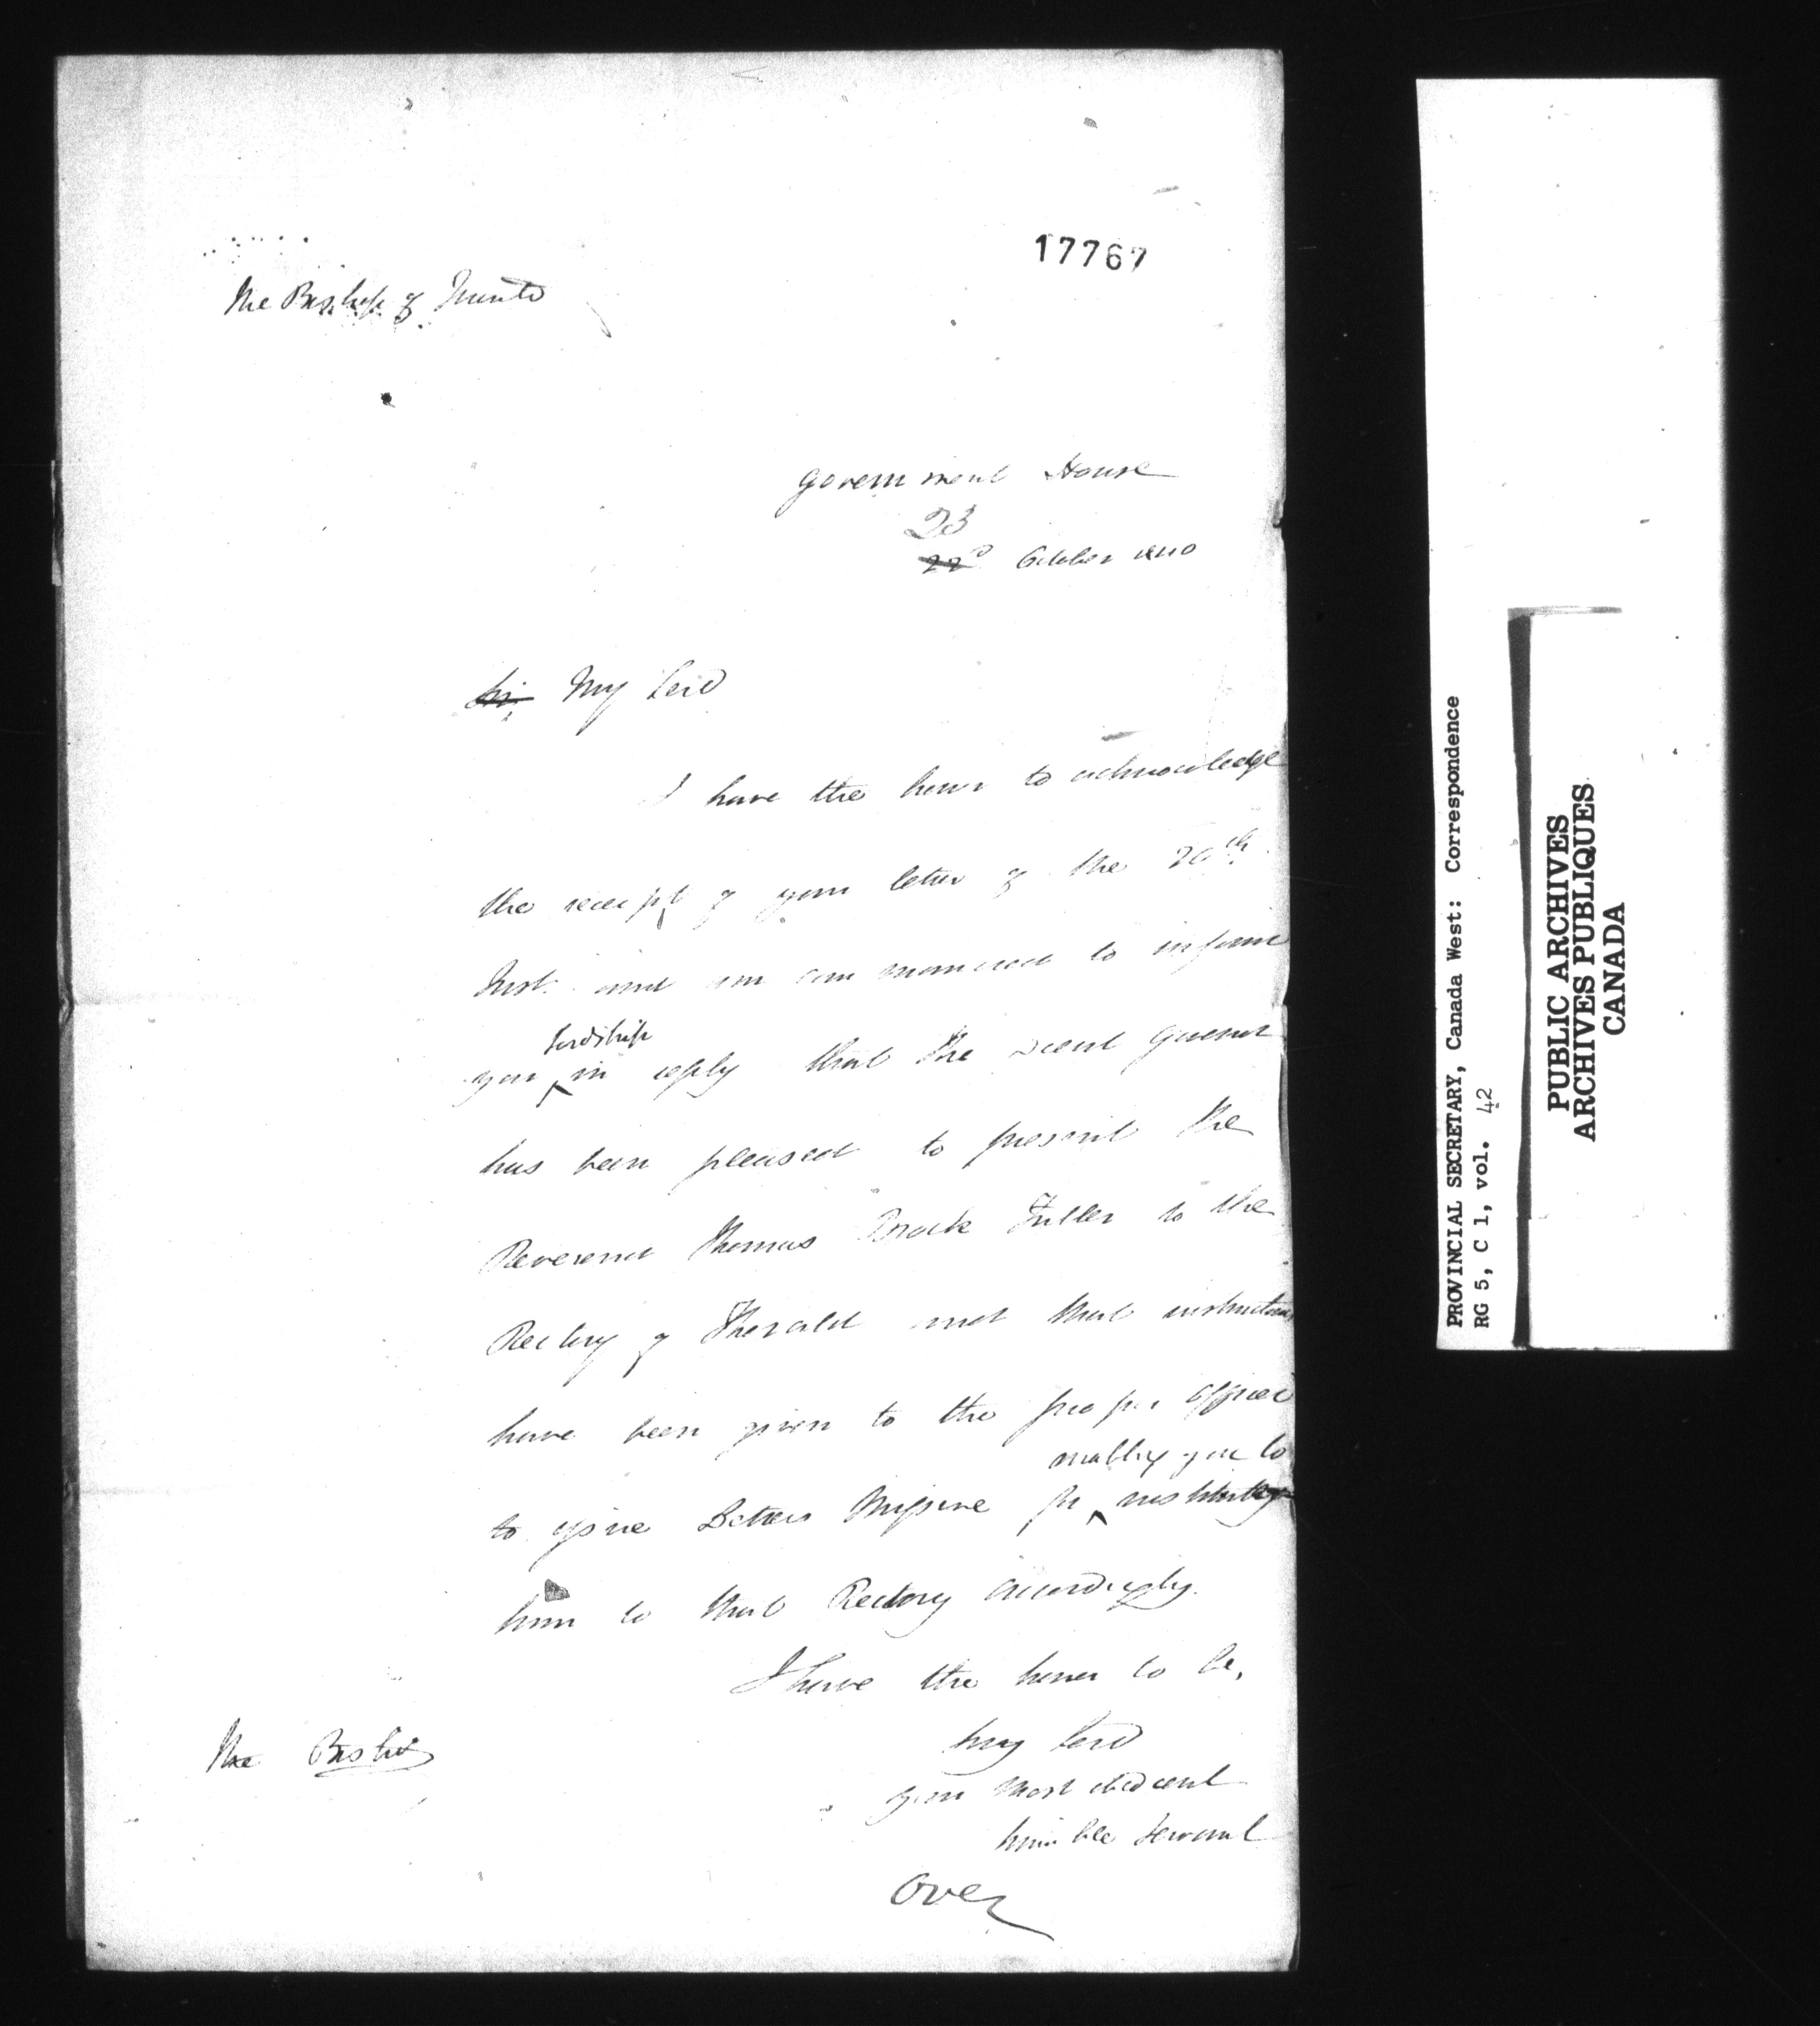 17767
The Bishop of Toronto
Government House
23
22d October 1840
Sir, My Lord
I have the honor to acknowledge
the receipt of your letter of the 20th
Inst. and am commanded to inform
Lordship
your in reply that the Lieut Governor
has been pleased to present the
Reverend Thomas Brock Fuller to the
Rectory of Thorold and that instructions
have been given to the proper officer
enabling you to
to issue Letters Missive for instituting
him to that Rectory accordingly.
I have the honor to be,
My Lord
Your most obedient
humble Servant
The Bishop
Over
PROVINCIAL SECRETARY, Canada West: Correspondence
RG 5, C 1, vol. 42
PUBLIC ARCHIVES
ARCHIVES PUBLIQUES
CANADA